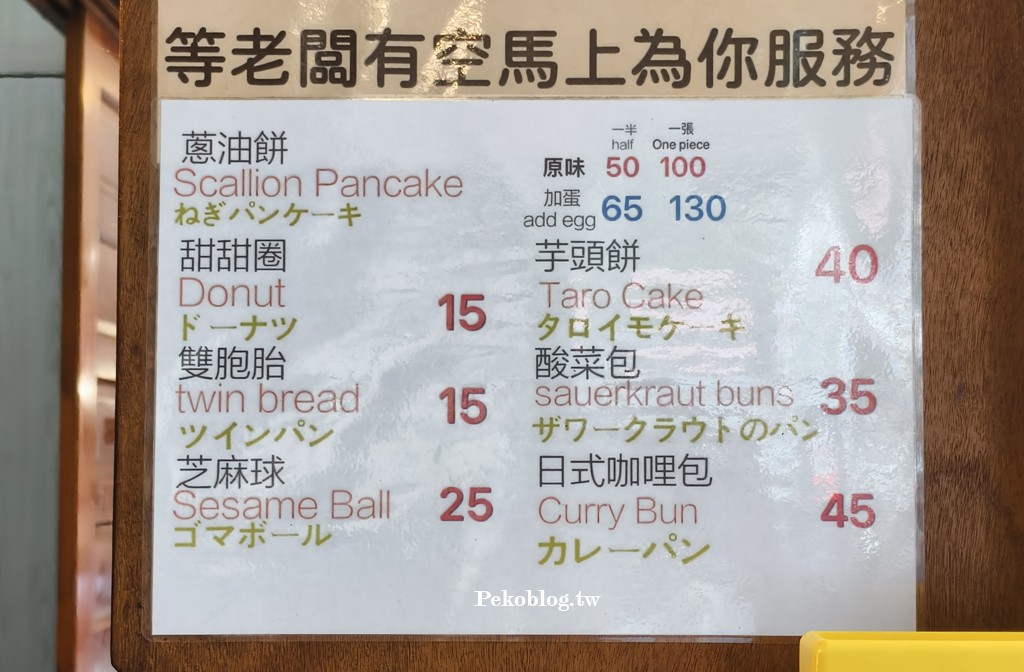 等老闆有空馬上為你服務
蔥油餅
Scallion Pancake
ねぎパンケーキ
一半 一張
half One piece
原味 50 100
加蛋
add egg 65 130
甜甜圈
Donut
ドーナツ
15
芋頭餅
Taro Cake
タロイモケーキ
40
雙胞胎
twin bread
ツインパン
15
酸菜包
sauerkraut buns
ザワークラウトのパン
35
芝麻球
Sesame Ball
ゴマボール
25
日式咖哩包
Curry Bun
カレーパン
45
Pekoblog.tw